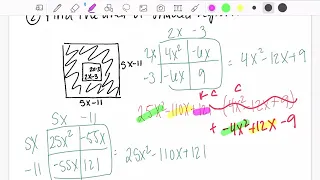 ② Find the area of shaded reg
2x-3
2x-3
5x-11
5x-11
2x -3
2x 4x² -6x
-3 -6x 9
= 4x²-12x+9
5x -11
5x 25x² -55x
-11 -55x 121
= 25x²-110x+121
KC C
25x²-110x+121 (4x²-12x+9)
+ -4x²+12x-9